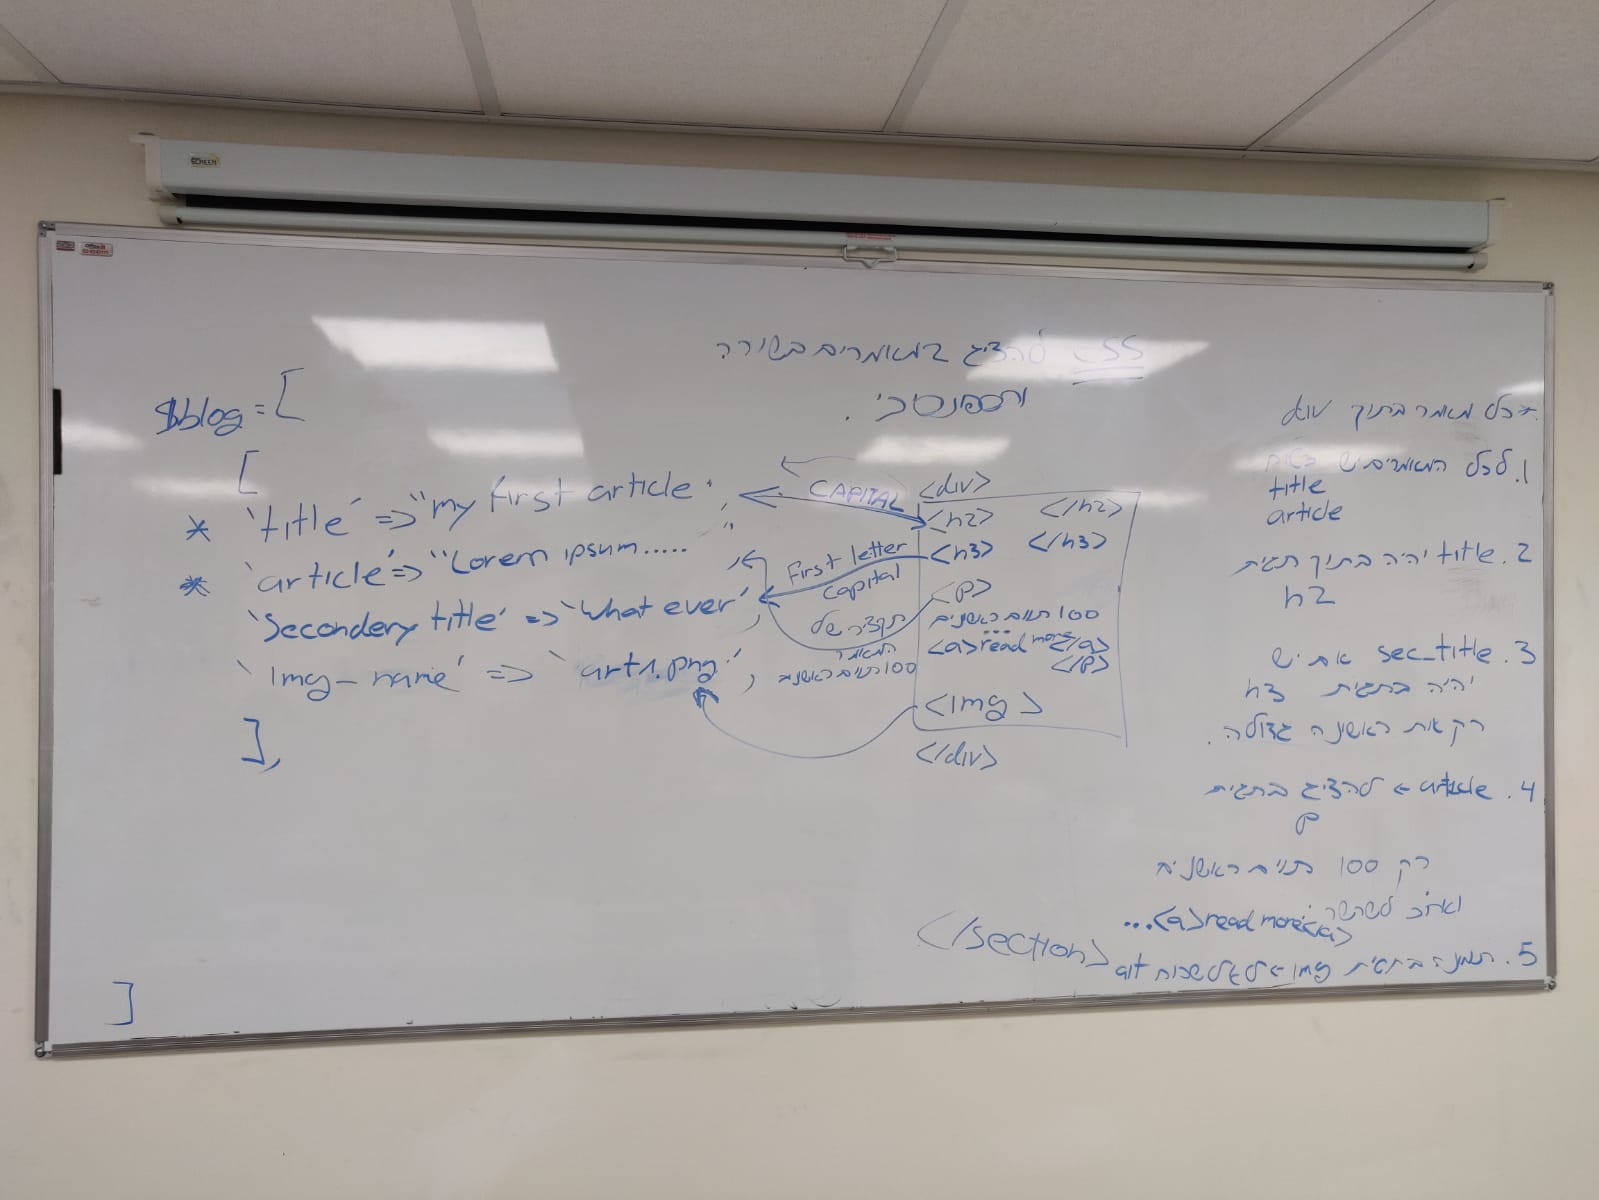 SCREEN
CSS - להציג 3 מאמרים בשורה
ורספונסיבי.
$blog = [
[
* 'title' => "my first article",
* 'article' => "Lorem ipsum.....",
'Secondery title' => 'what ever',
'img_name' => 'art1.png',
],
]
CAPITAL
First letter
capital
תקציר של
המאמר
100 תווים ראשונים
<div>
<h2> </h2>
<h3> </h3>
<p>
100 תווים ראשונים
...
<a>read more</a>
</p>
<img>
</div>
</section>
* כל מאמר בתוך div
1. לכל המאמרים יש
title
article
2. title יהיה בתוך תגית
h2
3. sec_title אם יש
יהיה בתגית h3
רק אות ראשונה גדולה.
4. article ← להציג בתגית
p
רק 100 תווים ראשונים
...<a>read more</a>
5. תמונה בתגית img ← לא לשכוח alt